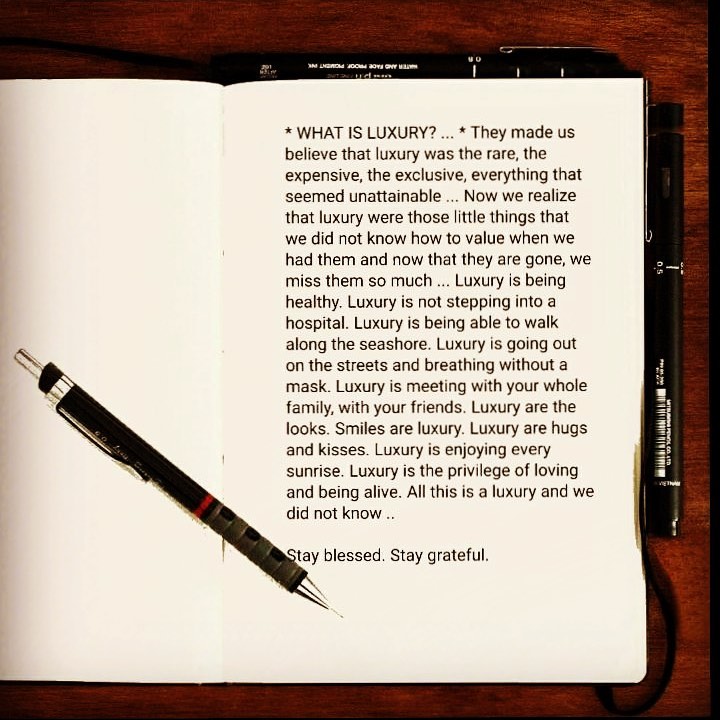 WATER AND FADE PROOF, PIGMENT INK
0.8
* WHAT IS LUXURY? ... * They made us
believe that luxury was the rare, the
expensive, the exclusive, everything that
seemed unattainable ... Now we realize
that luxury were those little things that
we did not know how to value when we
had them and now that they are gone, we
miss them so much ... Luxury is being
healthy. Luxury is not stepping into a
hospital. Luxury is being able to walk
along the seashore. Luxury is going out
on the streets and breathing without a
mask. Luxury is meeting with your whole
family, with your friends. Luxury are the
looks. Smiles are luxury. Luxury are hugs
and kisses. Luxury is enjoying every
sunrise. Luxury is the privilege of loving
and being alive. All this is a luxury and we
did not know ..
Stay blessed. Stay grateful.
0.5
MITSUBISHI PENCIL CO., LTD.